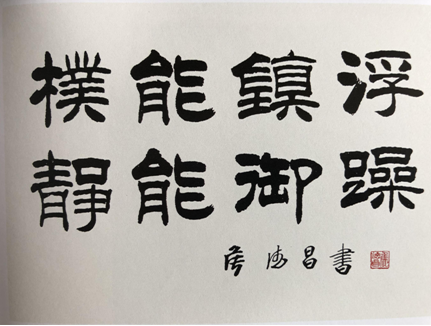 樸能鎮浮
靜能御躁
侯德昌書